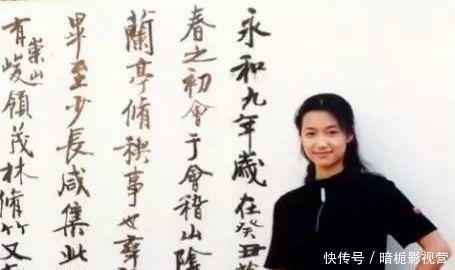 永和九年歲在癸丑
春之初會于會稽山陰
蘭亭脩禊事也羣
畢至少長咸集此
有崇山峻領茂林脩竹又
快传号 / 暗栀影视营